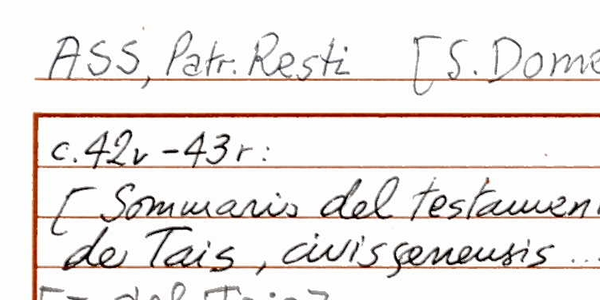 ASS, Patr. Resti [S. Dome
c. 42v - 43r:
[Sommario del testamen
de Tais, civis senensis ...
[- del Tais?